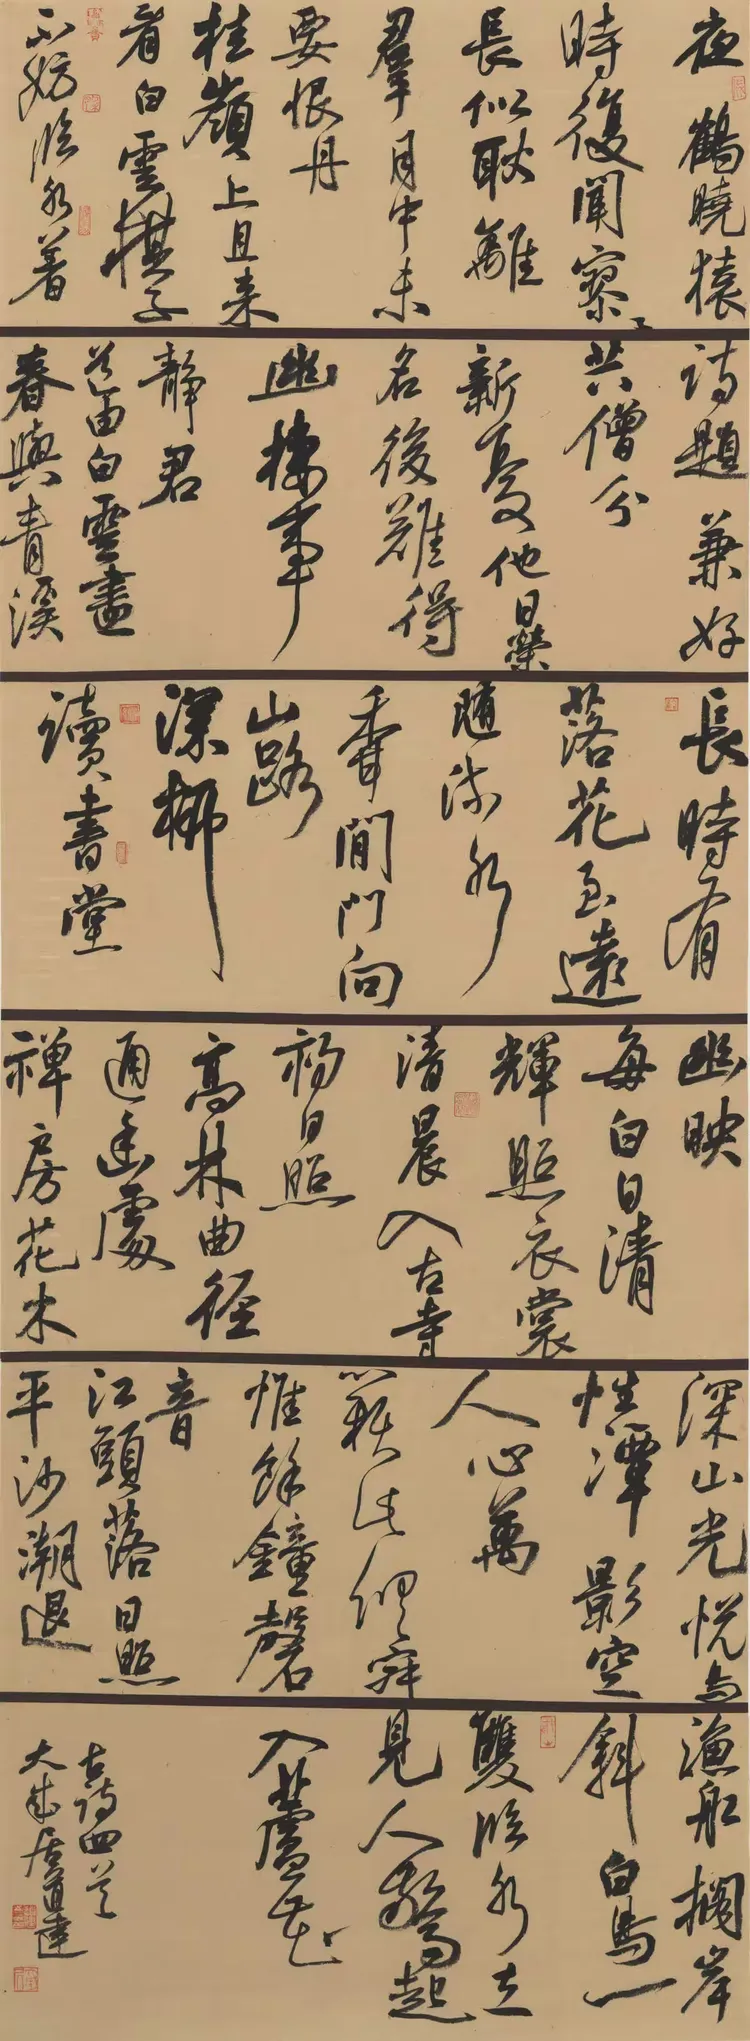 夜鶴曉猿
時復聞寥〻
長似耿離
羣月中未
要恨丹
桂嶺上且来
看白雲棋子
不妨臨水着
詩題兼好
共僧分
新憂他日榮
名後難得
幽棲事
静君
道由白雲盡
春與青溪
長時有
落花至遠
随流水
香閒門向
山路
深柳
讀書堂
幽映
每白日清
輝照衣裳
清晨入古寺
初日照
高林曲徑
通幽處
禅房花木
深山光悦鳥
性潭影空
人心萬
籟此俱寂
惟餘鐘磬
音
江頭落日照
平沙潮退
漁船擱岸
斜白鳥一
雙臨水立
見人驚起
入蘆花
古詩四首
大成居道建